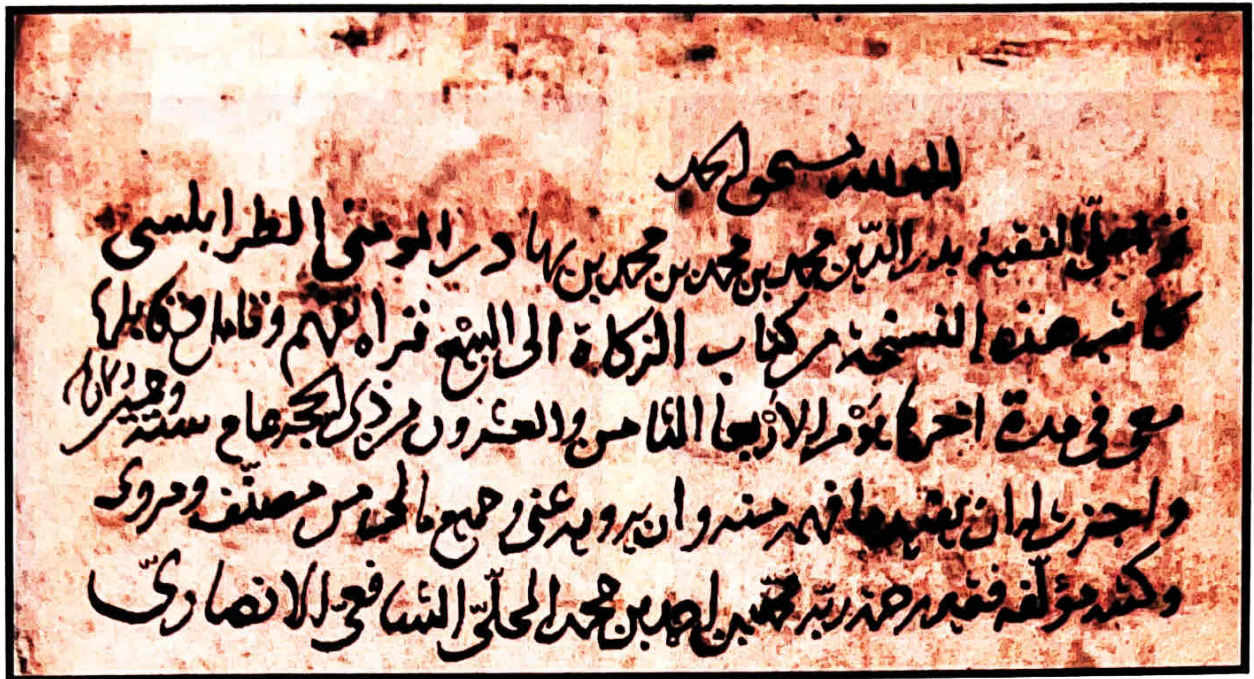 الله يستحق الحمد
قرأ علي الفقيه بدر الدين محمد بن محمد بن محمد بن بهادر المومني الطرابلسي
كاتب هذه النسخة من كتاب الزكاة الى البيع قراة تفهم وتامل في كلها
معي في مدة اخرها يوم الأربعا الثامن والعشرون من ذي الحجة عام ستة وخمسين
واجزت له ان يفيد ما فهم منه وان يرويه عني وجميع مالي من مصنف ومروي
وكتبه مؤلفه فقير رحمة ربه محمد بن احمد بن محمد المحلي الشافعي الانصاري